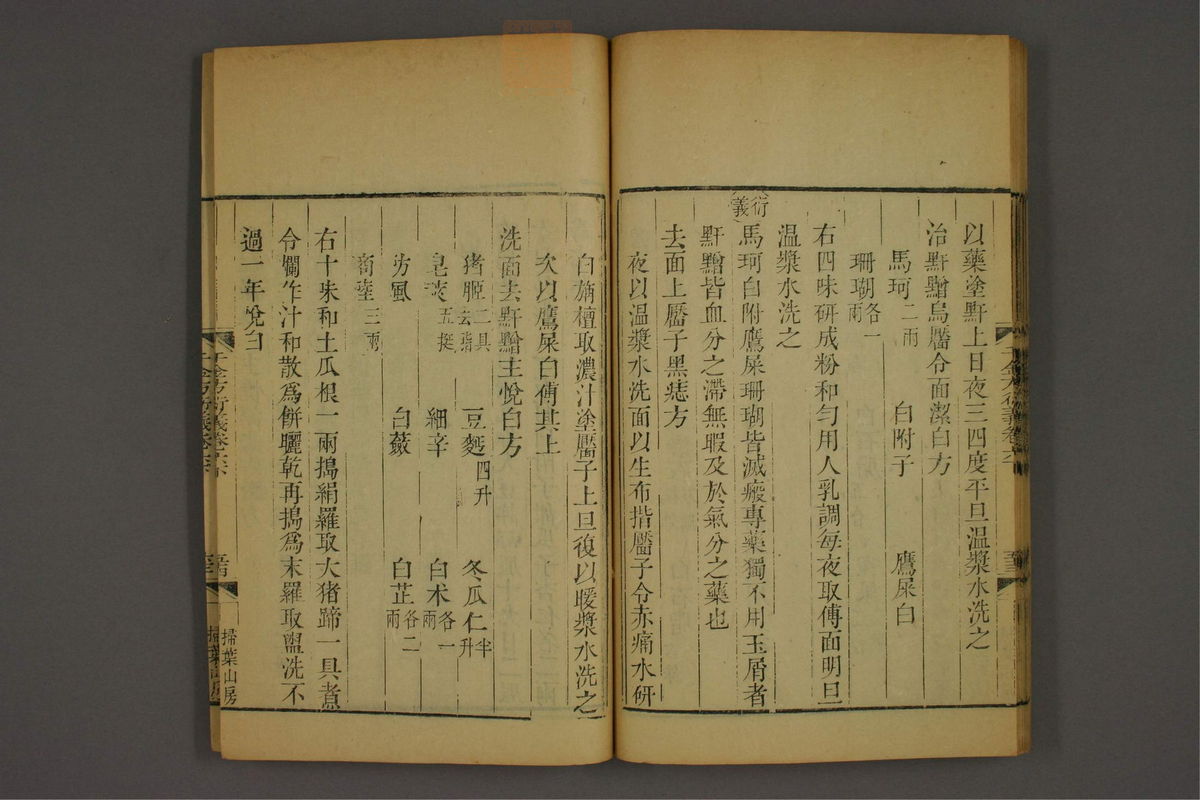 以藥塗䵟上日夜三四度平旦温漿水洗之
治䵟䵳烏靨令面潔白方
馬珂二兩 白附子 鷹屎白
珊瑚各一兩
右四味研成粉和勻用人乳調每夜取傅面明旦
温漿水洗之
衍義
馬珂白附鷹屎珊瑚皆滅瘢專藥獨不用玉屑者
䵟䵳皆血分之滯無暇及於氣分之藥也
去面上靨子黑痣方
夜以温漿水洗面以生布揩靨子令赤痛水研
白旃檀取濃汁塗靨子上旦復以暖漿水洗之
次以鷹屎白傅其上
洗面去䵟䵳主悅白方
猪胰二具去脂 豆麪四升 冬瓜仁半升
皂莢五挺 細辛 白朮各一兩
防風 白蘞 白芷各二兩
商陸三兩
右十味和土瓜根一兩搗絹羅取大猪蹄一具煮
令爛作汁和散為餅曬乾再搗為末羅取盥洗不
過一年悅白
千金方衍義卷六下
掃葉山房